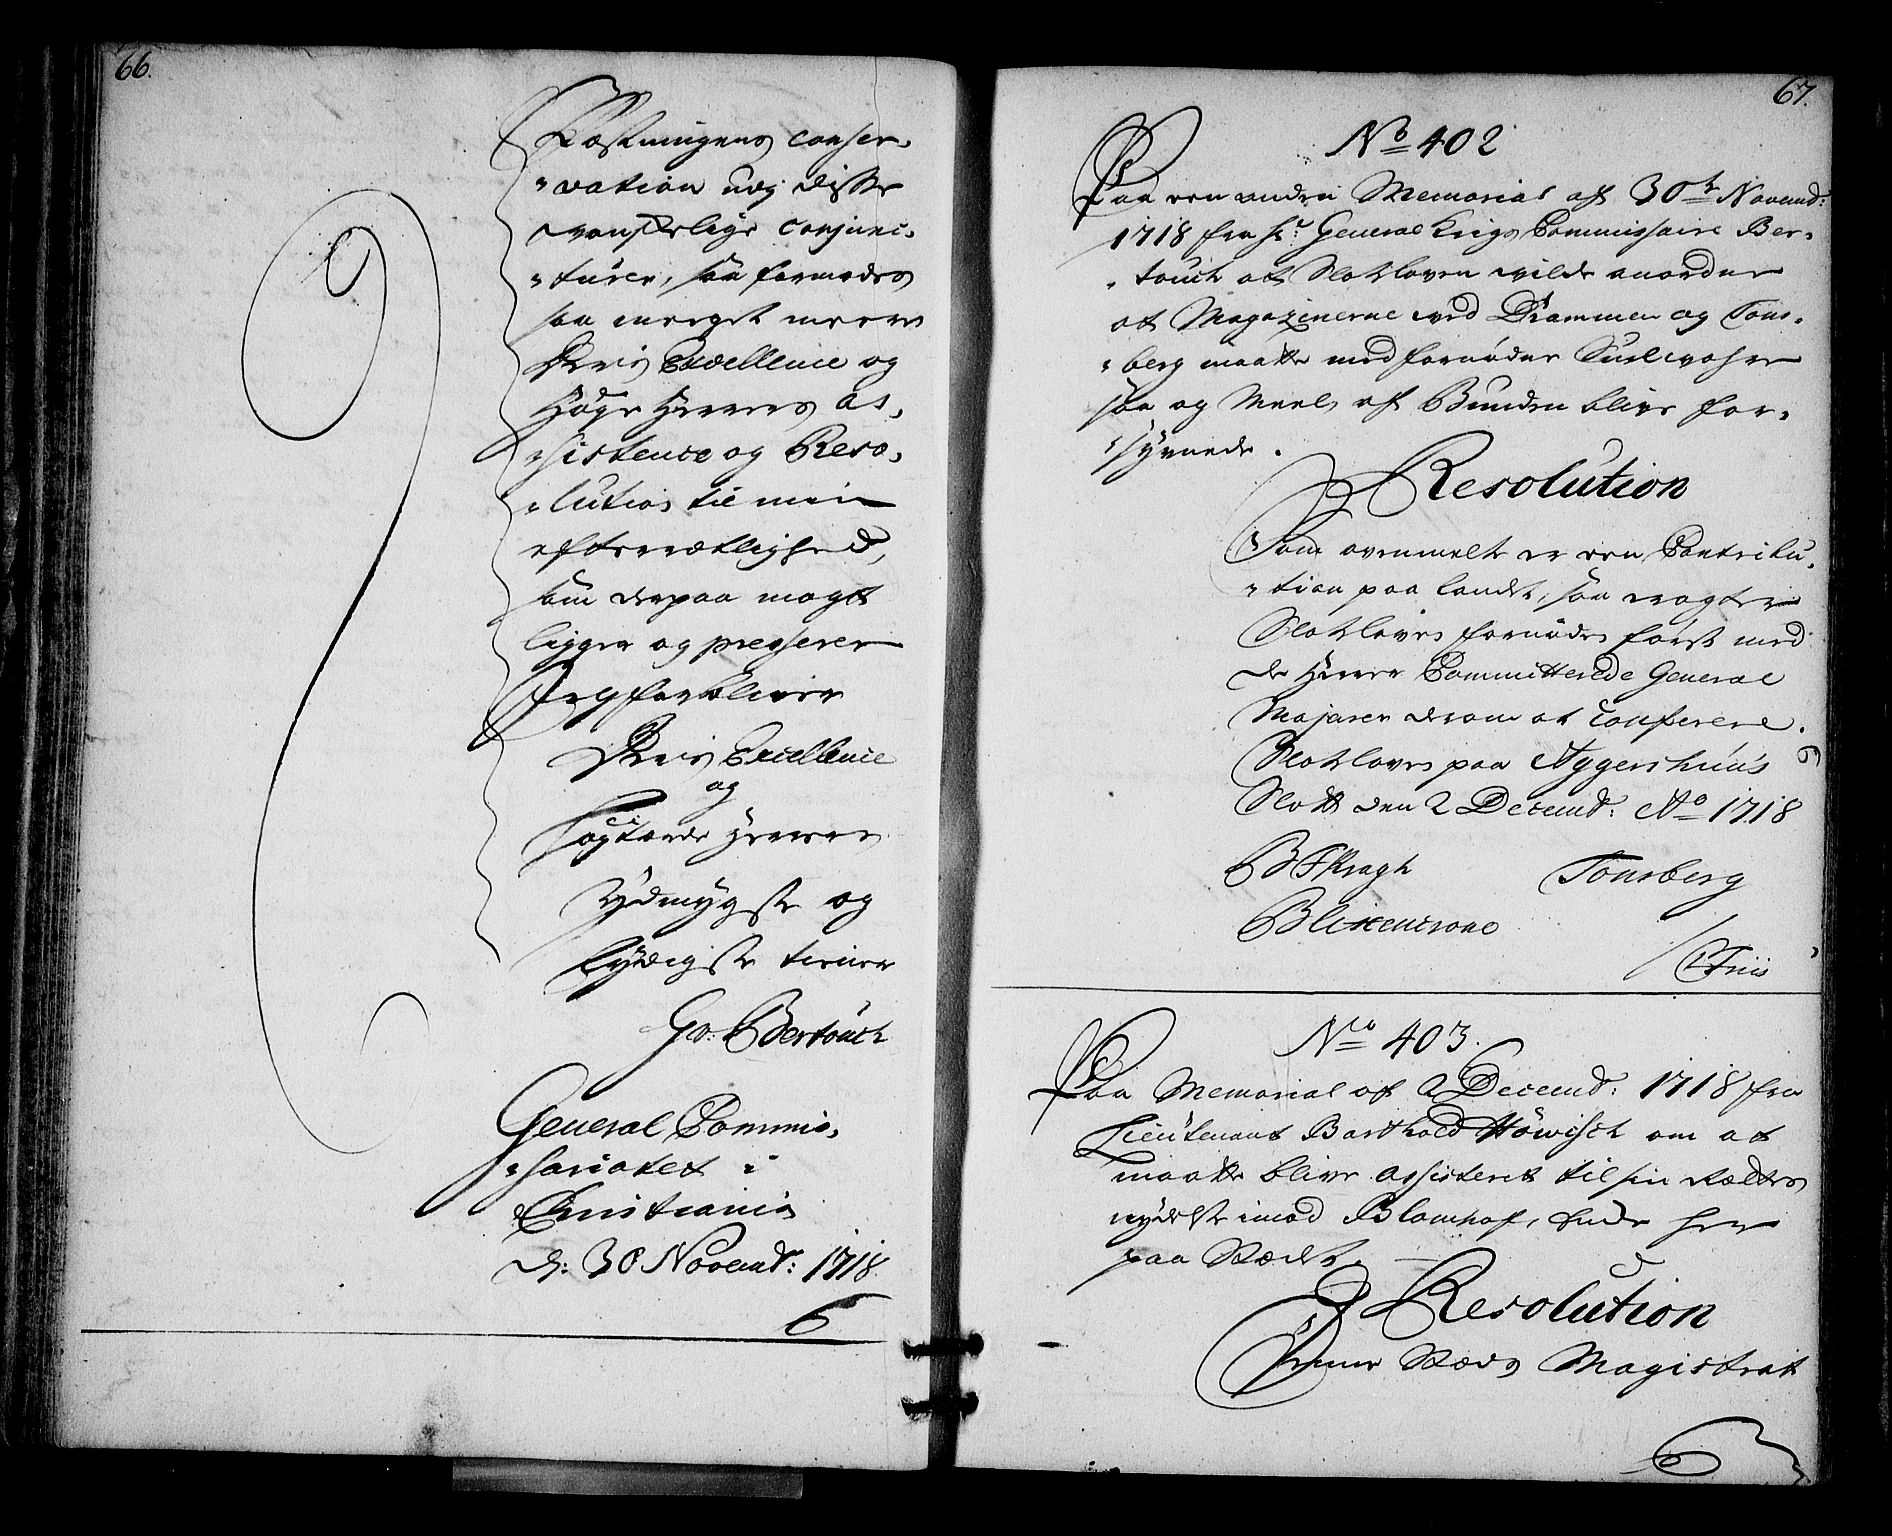 66.
Fæstningens conser¬
vation udj disse
vanskelige Conjunc¬
turer, saa formodes
saa meeget meere
Deris Excellence og
Høye Herrers As¬
sistence og Reso¬
lution til min
efterrætlighed,
som derpaa magt
ligger og presserer
Jeg forbliver
Deris Excellence
og
Høgtærede Herrers
Ydmygste og
lydigste tienere
Bertouch
General Commis¬
sariatet i
Christiania
d: 30 Novemb: 1718
67.
No 402
Paa een anden Memorial af 30te Novemb:
1718 fra Hr: General Krigs Commissaire Ber¬
touch at Slotsloven wilde anordne
at Magazinerne ved Drammen og Tons¬
berg maatte med fornøden
saa og Meel af Bunden blive for¬
syünede.
Resolution
Som ovenmelte er een Contribu¬
tion paa landet, saa eragter
Slotsloven fornøden først med
de Herrer Committerede General
Majorer derom at Conferere.
Slotsloven paa Aggershuus
Slott den 2 Decemb: Ao 1718
BFKragh Tonsberg
Blixencrone
CFriis
No 403.
Paa Memorial af 2 Decemb: 1718 fra
Lieutenant Barthold Höwisch om at
maatte blive assisteret til sin Rættes
nydelse imod Blomhof, her
paa Stædet.
Resolution
Denne Stæds Magistrat